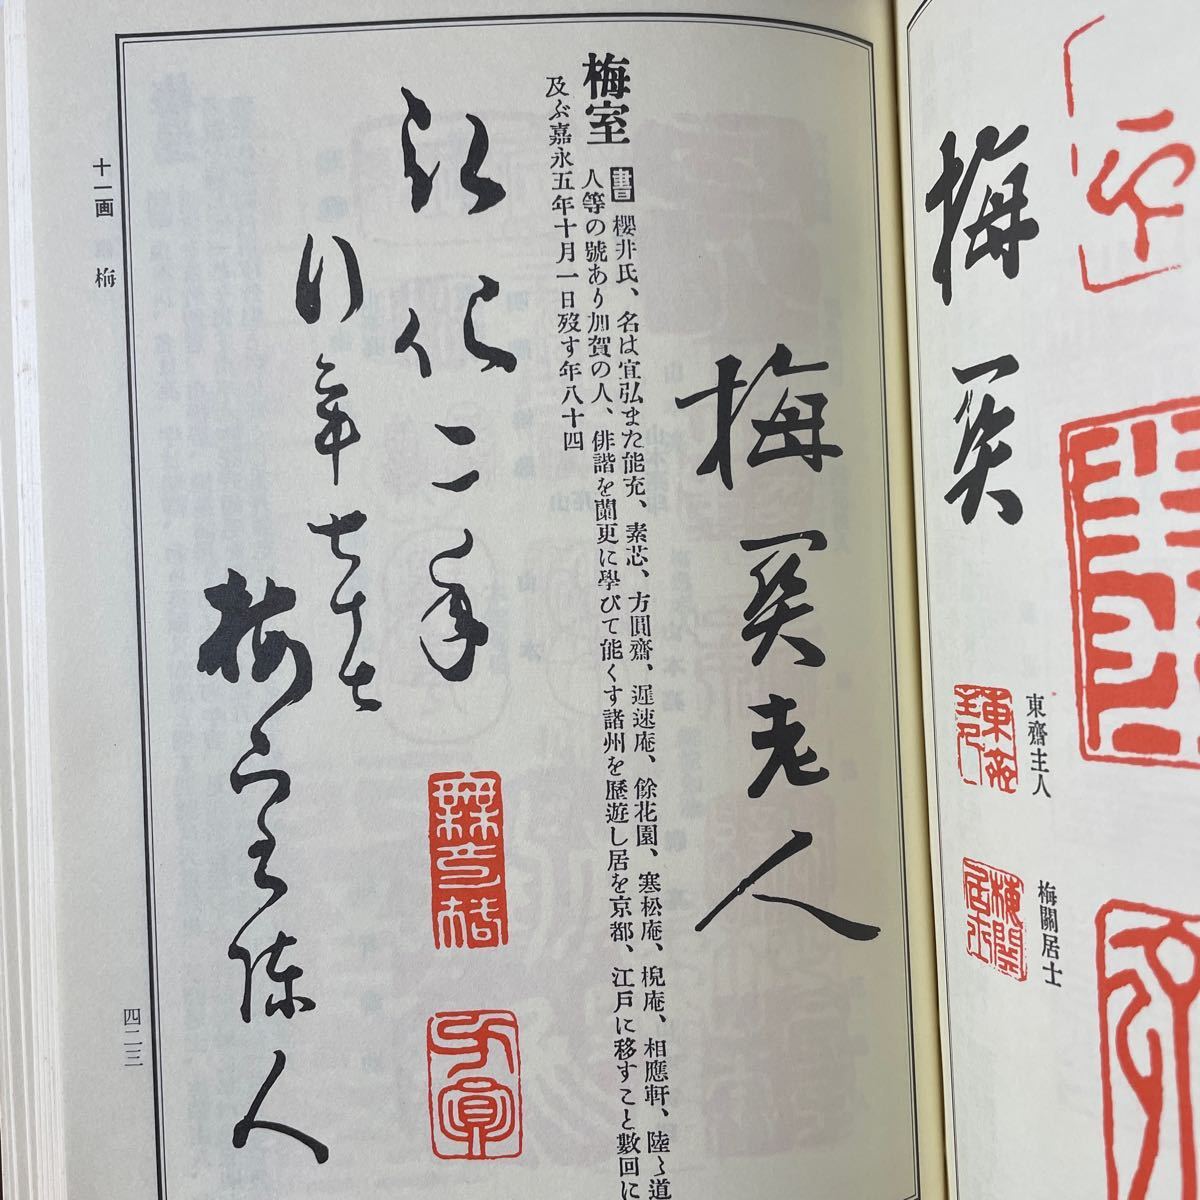 梅関
東齋主人
梅關居士
梅関老人
梅室
書 櫻井氏、名は宜弘また能充、素芯、方圓齋、遅速庵、餘花園、寒松庵、梘庵、相應軒、陸〻道
人等の號あり加賀の人、俳諧を闌更に學びて能くす諸州を歷遊し居を京都、江戸に移すこと數回に
及ぶ嘉永五年十月一日歿す年八十四
弘化二年
行年七十七
梅室陳人
十一画 梅
四二三